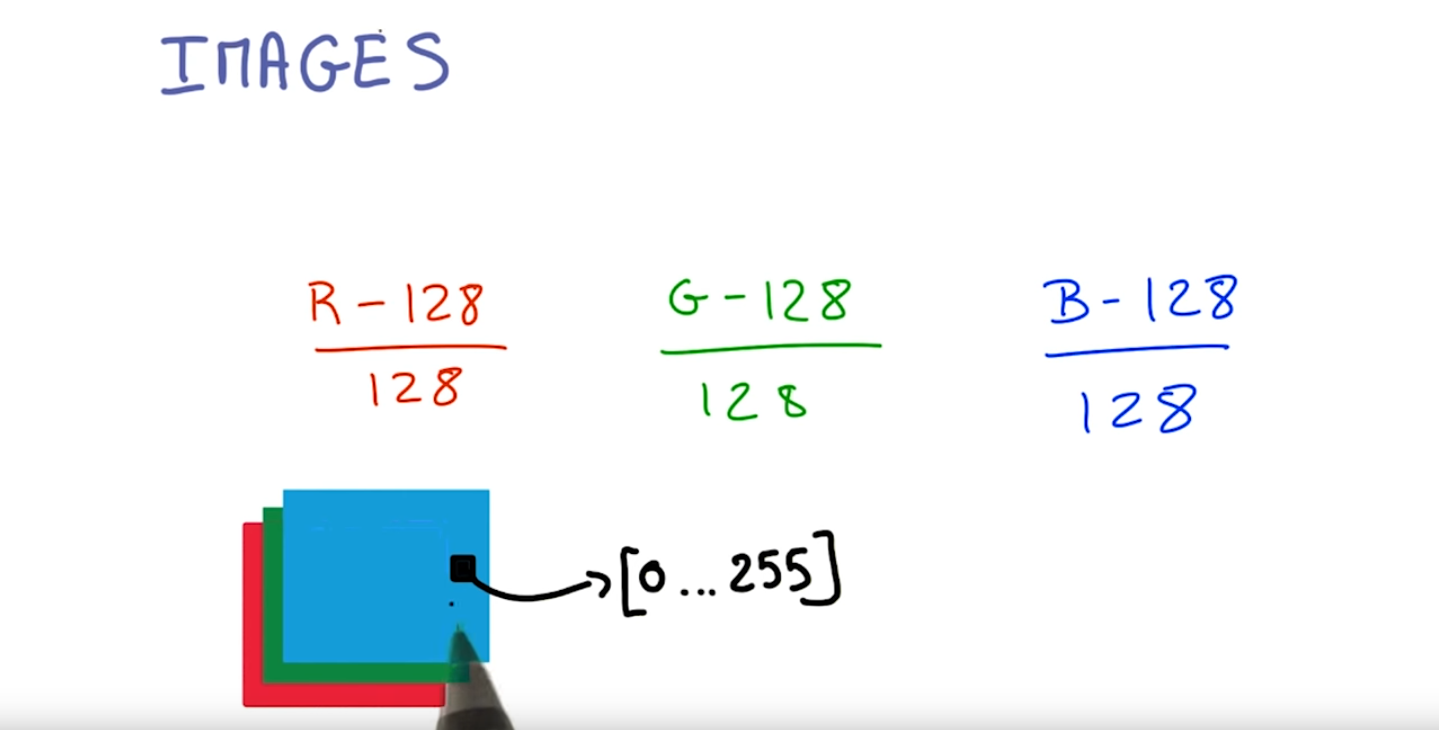 IMAGES
R - 128 G - 128 B - 128
128 128 128
[0 ... 255]